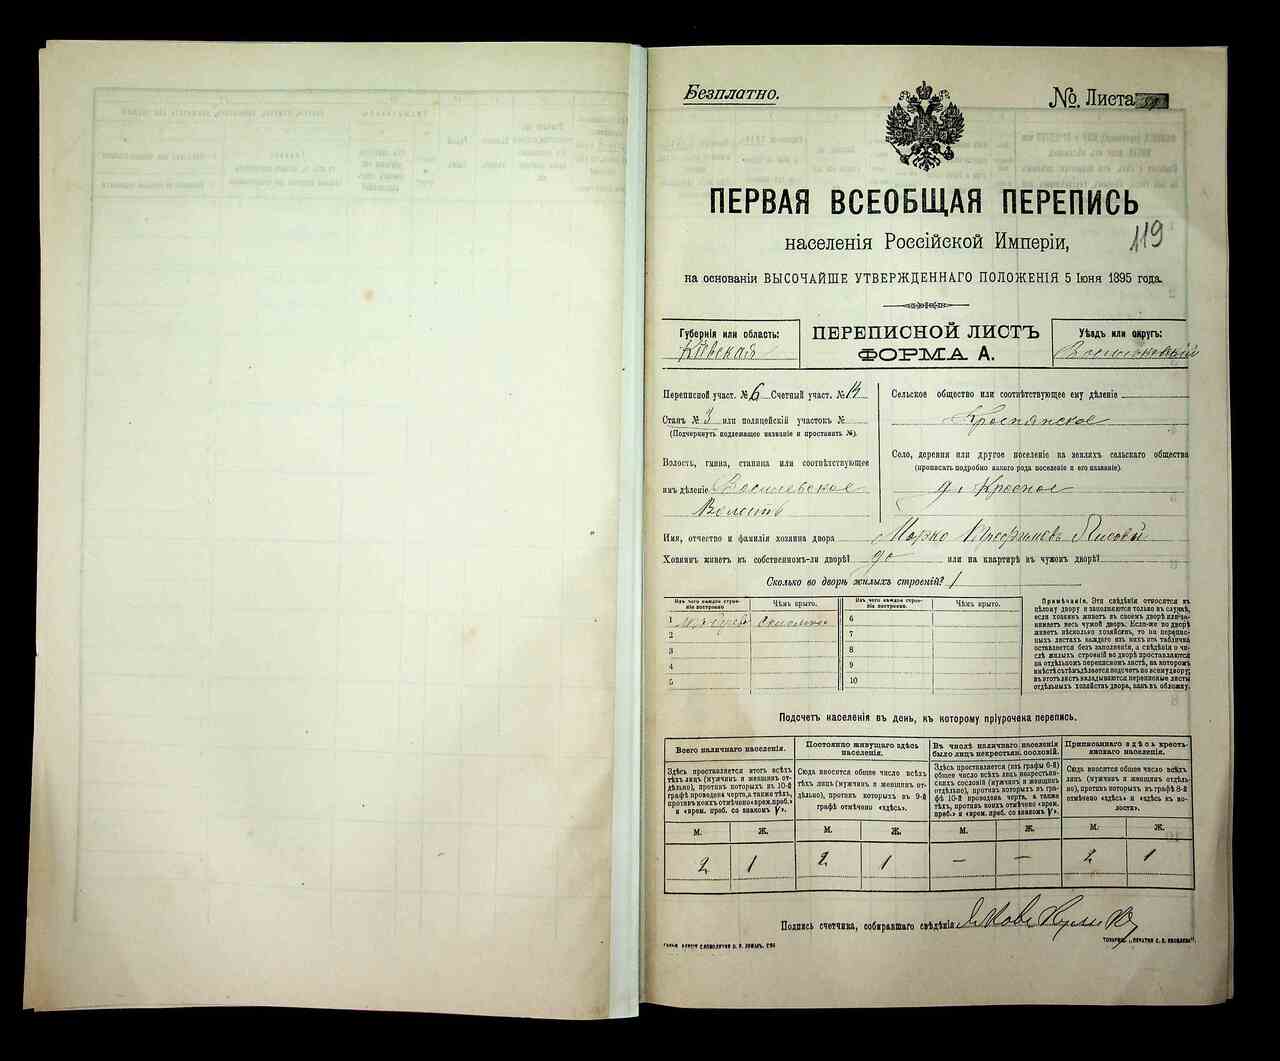 Безплатно.
№ Листа
ПЕРВАЯ ВСЕОБЩАЯ ПЕРЕПИСЬ
119
населенія Россійской Имперіи,
на основаніи ВЫСОЧАЙШЕ УТВЕРЖДЕННАГО ПОЛОЖЕНІЯ 5 Іюня 1895 года.
Губернія или область:
Кіевская
ПЕРЕПИСНОЙ ЛИСТЪ
ФОРМА А.
Уѣздъ или округъ:
Переписной участ. № 6 Счетный участ. № 14
Станъ № 3 или полицейскій участокъ №
(Подчеркнуть подлежащее названіе и проставить №).
Волость, гмина, станица или соотвѣтствующее
имъ дѣленіе
Волость
Сельское общество или соотвѣтствующее ему дѣленіе
Село, деревня или другое поселеніе на земляхъ сельскаго общества
(прописать подробно какого рода поселеніе и его названіе).
д. Красное
Имя, отчество и фамилія хозяина двора Марко
Хозяинъ живетъ въ собственномъ-ли дворѣ? да или на квартирѣ въ чужомъ дворѣ?
Сколько во дворѣ жилыхъ строеній? 1
Изъ чего каждое строеніе построено
Чѣмъ крыто.
Изъ чего каждое строеніе построено.
Чѣмъ крыто.
1
2
3
4
5
6
7
8
9
10
Примѣчаніе. Эти свѣдѣнія относятся къ
цѣлому двору и заполняются только въ случаѣ,
если хозяинъ живетъ въ своемъ дворѣ или занимаетъ
весь чужой дворъ. Если-же во дворѣ
живетъ нѣсколько хозяйствъ, то на переписныхъ
листахъ каждаго изъ нихъ эта табличка
оставляется безъ заполненія, а свѣдѣнія о числѣ
жилыхъ строеній во дворѣ проставляются
на отдѣльномъ переписномъ листѣ, на которомъ
вмѣстѣ съ тѣмъ дѣлается подсчетъ по всему двору;
въ этотъ листъ вкладываются переписные листы
отдѣльныхъ хозяйствъ двора, какъ въ обложку.
Подсчетъ населенія въ день, къ которому пріурочена перепись.
Всего наличнаго населенія.
Здѣсь проставляется итогъ всѣхъ
тѣхъ лицъ (мужчинъ и женщинъ отдѣльно),
противъ которыхъ въ 10-й
графѣ проведена черта, а также тѣхъ,
противъ коихъ отмѣчено «врем. преб.»
и «врем. преб. со знакомъ V».
Постоянно живущаго здѣсь населенія.
Сюда вносится общее число всѣхъ
тѣхъ лицъ (мужчинъ и женщинъ отдѣльно),
противъ которыхъ въ 9-й
графѣ отмѣчено «здѣсь».
Въ числѣ наличнаго населенія
было лицъ некрестьян. сословій.
Здѣсь проставляется (изъ графы 6-й)
общее число всѣхъ лицъ некрестьянскихъ
сословій (мужчинъ и женщинъ
отдѣльно), противъ которыхъ въ графѣ
10-й проведена черта, а также
тѣхъ, противъ коихъ отмѣчено «врем.
преб.» и «врем. преб. со знакомъ V».
Приписаннаго здѣсь крестьянскаго населенія.
Сюда вносится общее число всѣхъ
лицъ (мужчинъ и женщинъ отдѣльно),
противъ которыхъ въ графѣ 8-й
отмѣчено «здѣсь» и «здѣсь къ волости».
М. Ж. М. Ж. М. Ж. М. Ж.
2 1 2 1 – – 2 1
Подпись счетчика, собиравшаго свѣдѣнія